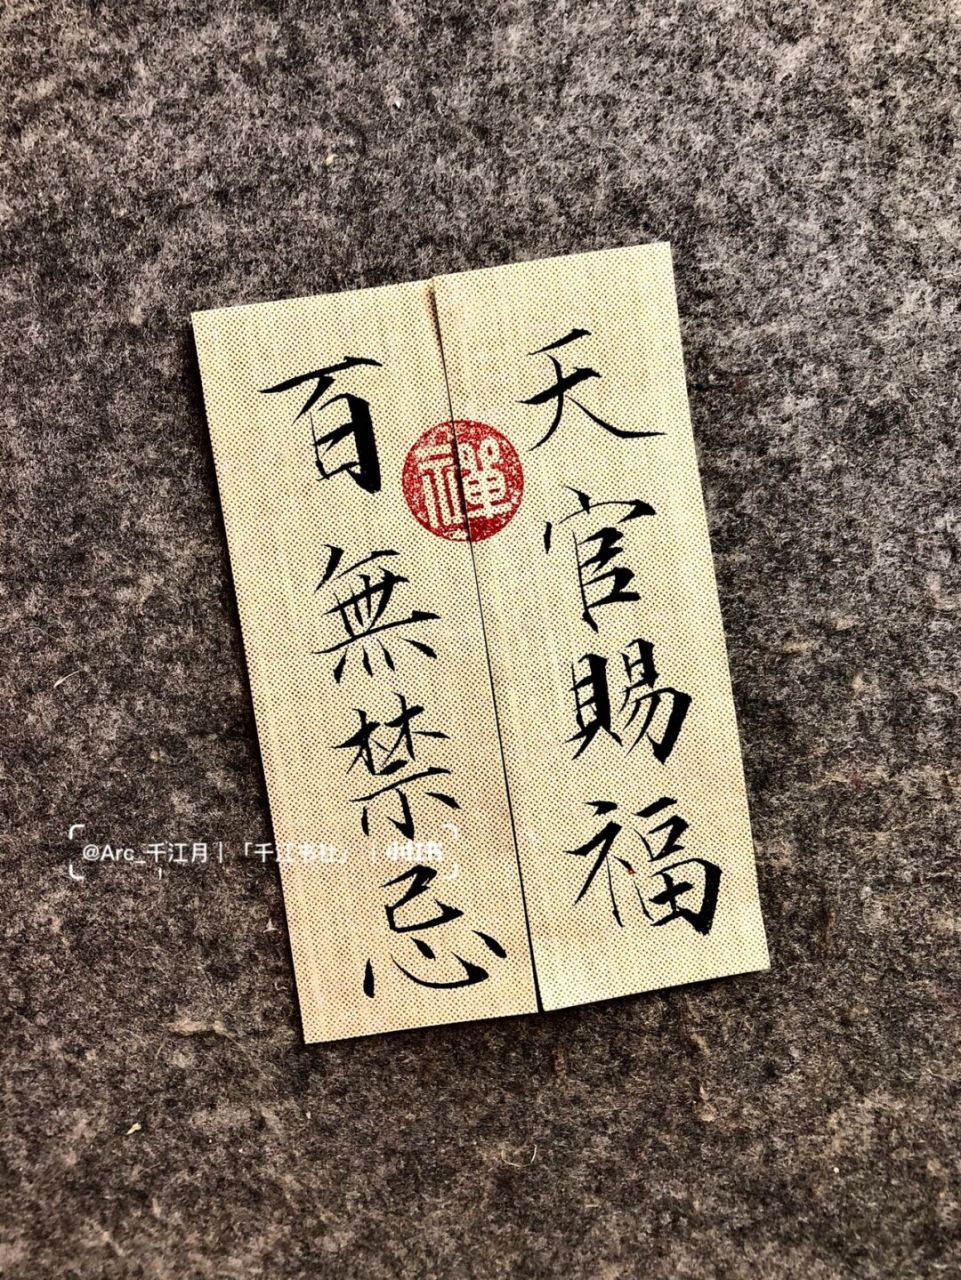 天官賜福
百無禁忌
禪
@Arc_千江月 | 「千江书社」 | 小红书